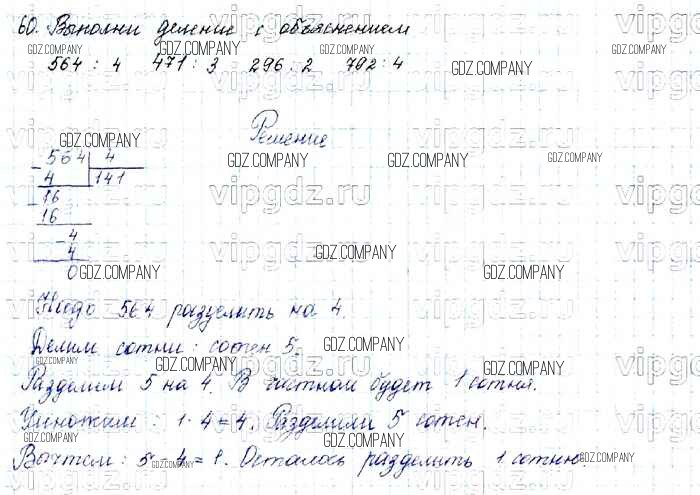 60. Выполни деление с объяснением
564 : 4 471 : 3 296 : 2 792 : 4
Решение
564 | 4
4 141
16
16
4
4
0
Надо 564 разделить на 4.
Делим сотни: сотен 5.
Разделим 5 на 4. В частном будет 1 сотня.
Умножаем: 1 · 4 = 4. Разделили 5 сотен.
Вычтем: 5 - 4 = 1. Осталось разделить 1 сотню.
GDZ.COMPANY
vipgdz.ru